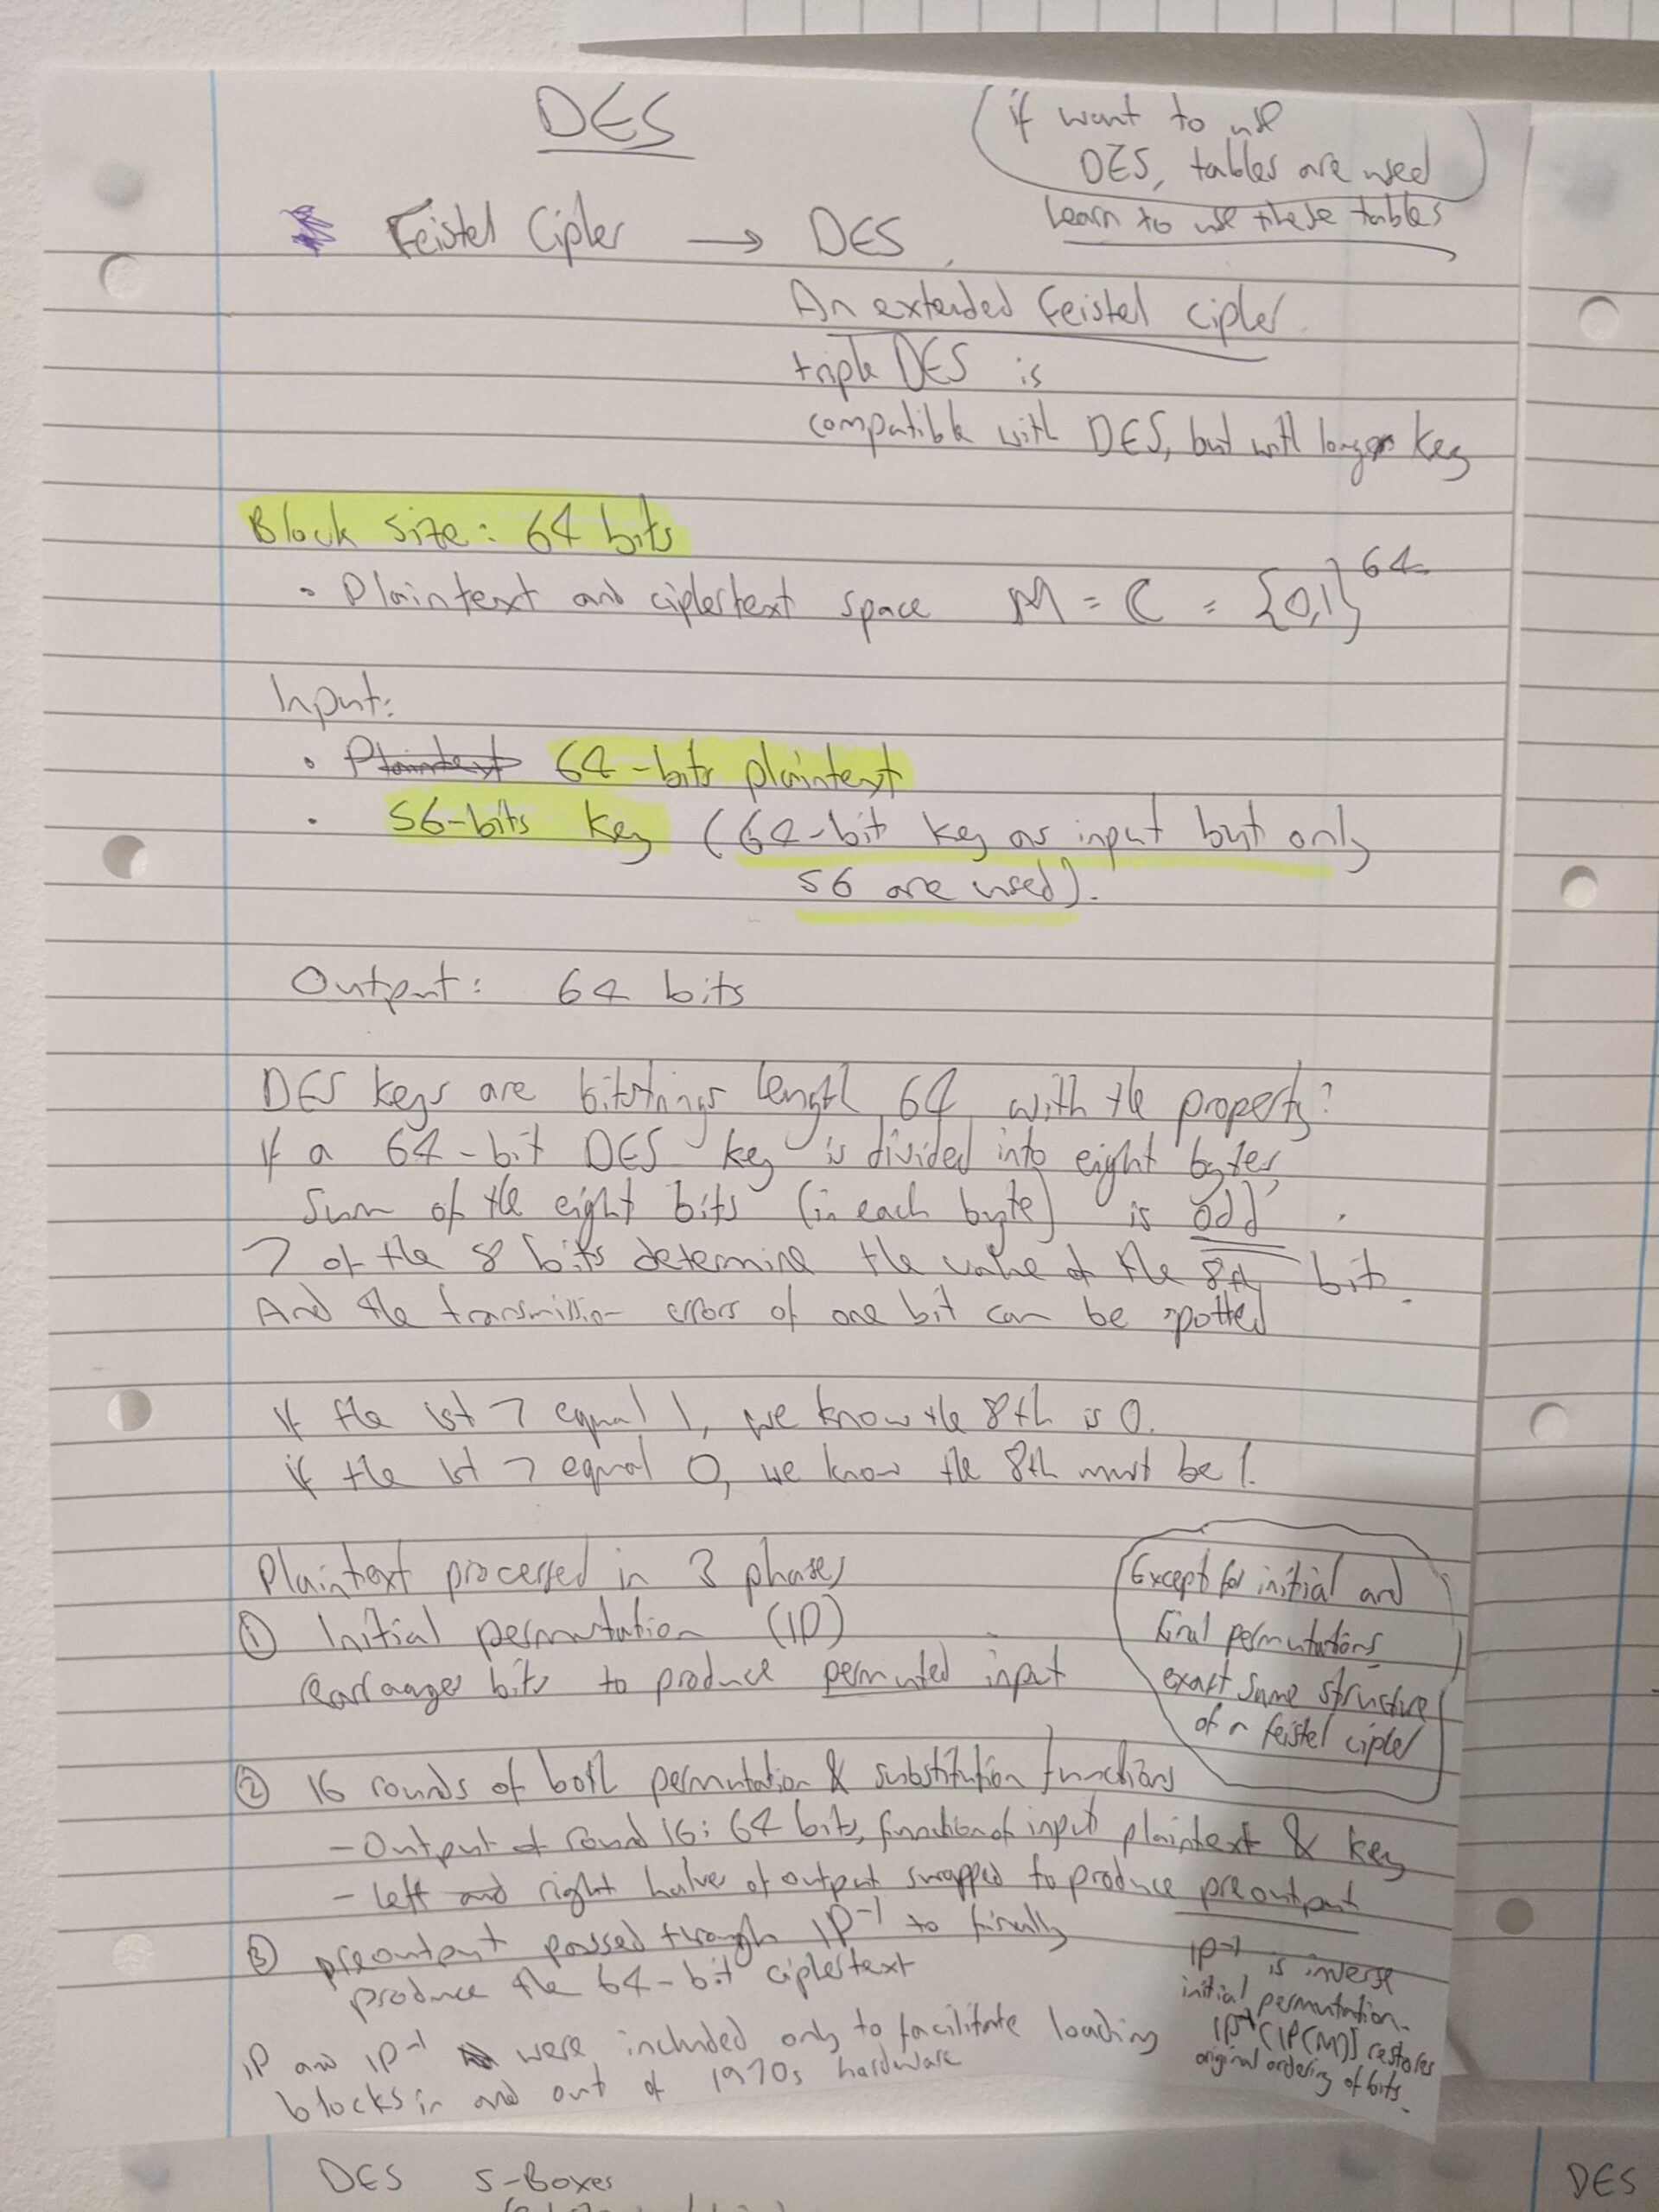 DES
(if want to use
DES, tables are used)
Learn to use these tables
Feistel Cipher → DES
An extended Feistel cipher
triple DES is
compatible with DES, but with longer key
Block size: 64 bits
• Plaintext and ciphertext space M = C = {0,1}^64
Input:
• Plaintext 64-bits plaintext
• 56-bits key (64-bit key as input but only
56 are used).
Output: 64 bits
DES keys are bitstrings length 64 with the property:
If a 64-bit DES key is divided into eight bytes,
Sum of the eight bits (in each byte) is odd.
7 of the 8 bits determine the value of the 8th bit.
And the transmission errors of one bit can be spotted
If the 1st 7 equal 1, we know the 8th is 0.
if the 1st 7 equal 0, we know the 8th must be 1.
Plaintext processed in 3 phases
① Initial permutation (IP)
rearranges bits to produce permuted input
Except for initial and
final permutations,
exact same structure
of a feistel cipher
② 16 rounds of both permutation & substitution functions
- Output of round 16: 64 bits, function of input plaintext & key
- Left and right halves of output swapped to produce preoutput
③ preoutput passed through IP^-1 to finally
produce the 64-bit ciphertext
IP^-1 is inverse
initial permutation.
IP^-1(IP(M)) restores
original ordering of bits.
IP and IP^-1 were included only to facilitate loading
blocks in and out of 1970s hardware
DES S-Boxes
DES